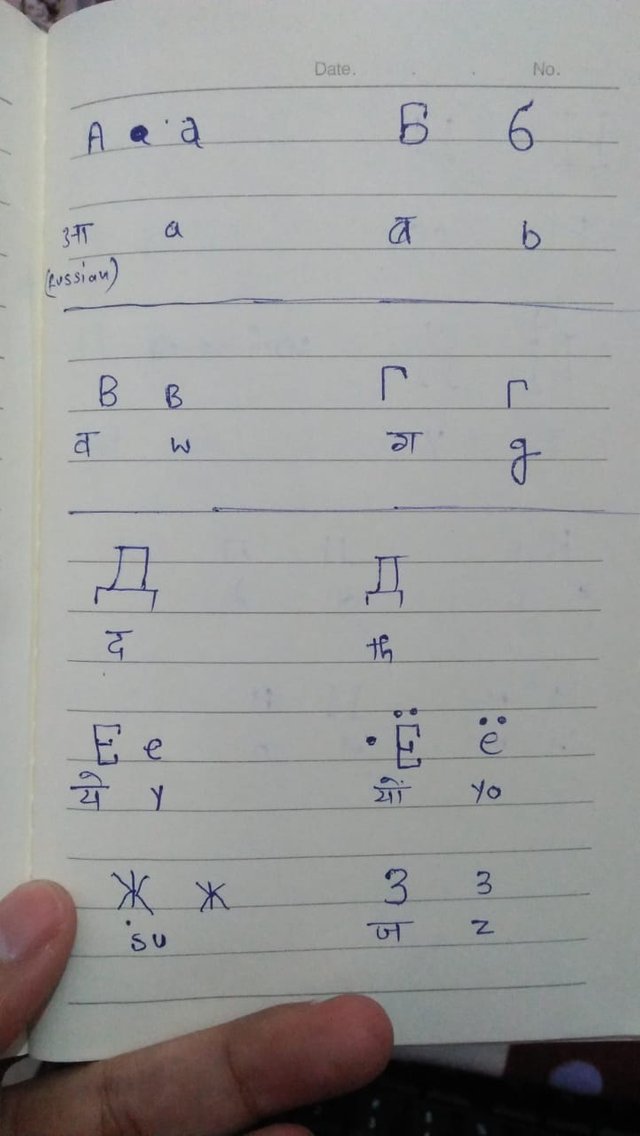 Date. No.
А а Б б
आ a ब b
(Russian)
В в Г г
व w ग g
Д д
द th
Е е Ё ё
ये y यो yo
Ж ж З з
su ज z